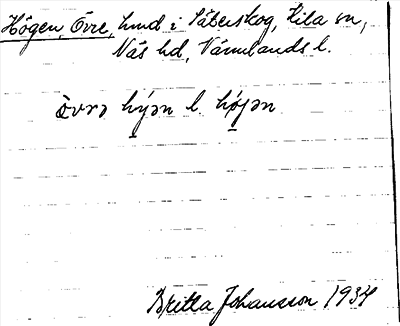 Högen, Övre, hmd i Säterskog, Kila sn,
Näs hd, Värmlands l.
òvrə hýən l. hǿ̣jən
Britta Johansson 1934